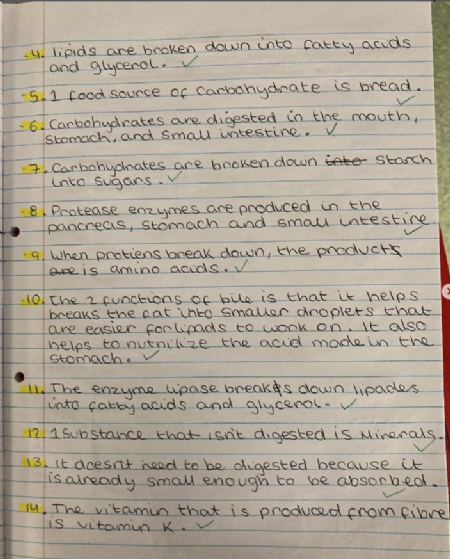 4. lipids are broken down into fatty acids
and glycerol.
5. 1 food source of carbohydrate is bread.
6. Carbohydrates are digested in the mouth,
stomach, and small intestine.
7. Carbohydrates are broken down into starch
into sugars.
8. Protease enzymes are produced in the
pancreas, stomach and small intestine
9. When protiens break down, the product
are is amino acids.
10. The 2 functions of bile is that it helps
breaks the fat into smaller droplets that
are easier for lipads to work on. It also
helps to nutrilize the acid made in the
stomach.
11. The enzyme lipase breaks down lipades
into fatty acids and glycerol.
12. 1 Substance that isn't digested is Minerals.
13. It doesn't need to be digested because it
is already small enough to be absorbed.
14. The vitamin that is produced from fibre
is vitamin K.